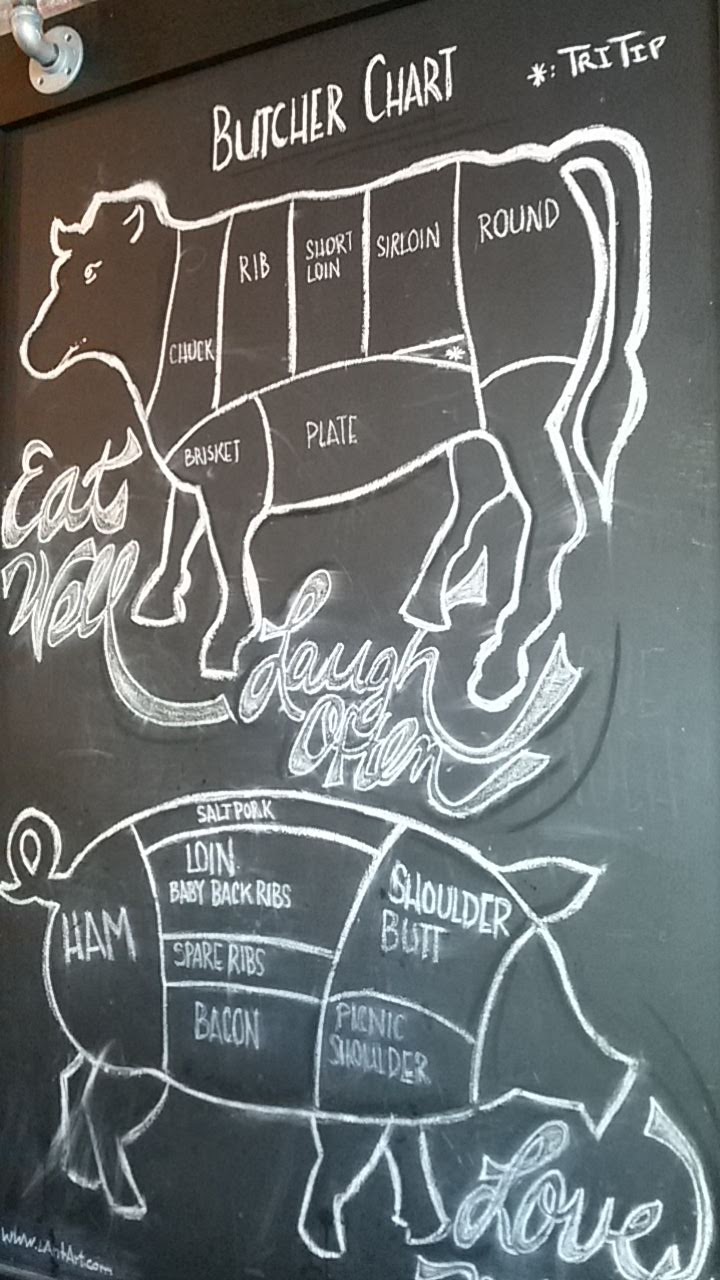 BUTCHER CHART
*: TRI TIP
CHUCK
RIB
SHORT
LOIN
SIRLOIN
ROUND
*
BRISKET
PLATE
Eat
Well
Laugh
Often
SALT PORK
LOIN
BABY BACK RIBS
SHOULDER
BUTT
HAM
SPARE RIBS
BACON
PICNIC
SHOULDER
Love